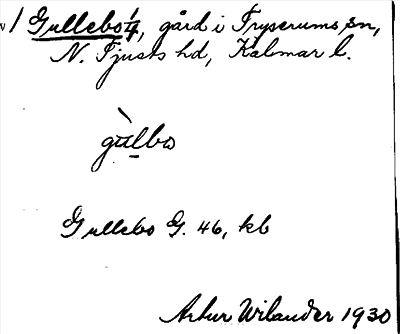 v/ Gullebo 1/4, gård i Tryserums sn,
N. Tjusts hd, Kalmar l.
gùlbo
Gullebo G. 46, kb
Artur Wilander 1930